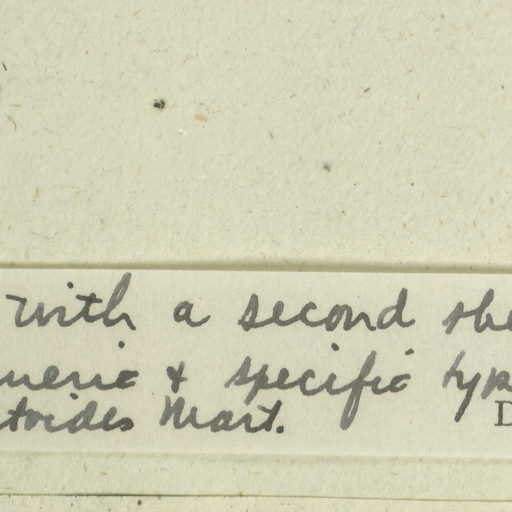 with a second she
neric & specific typ
toides Mart. D